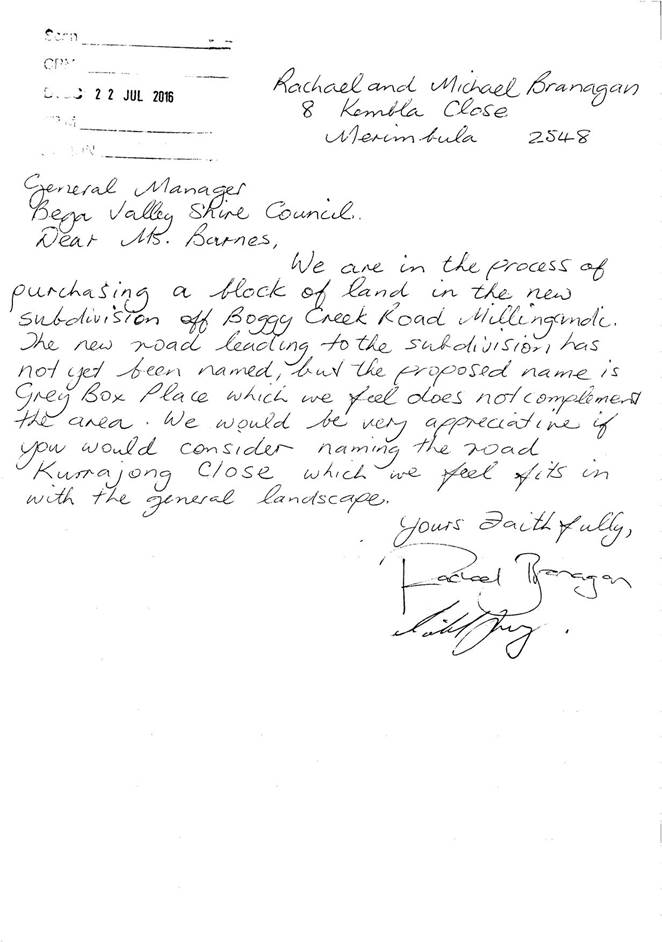 Scan
22 JUL 2016
Rachael and Michael Branagan
8 Kembla Close
Merimbula 2548
General Manager
Bega Valley Shire Council.
Dear Ms. Barnes,
We are in the process of
purchasing a block of land in the new
subdivision off Boggy Creek Road Millingandi.
The new road leading to the subdivision, has
not yet been named, but the proposed name is
Grey Box Place which we feel does not complement
the area. We would be very appreciative if
you would consider naming the road
Kurrajong Close which we feel fits in
with the general landscape.
Yours Faithfully,
Rachael Branagan